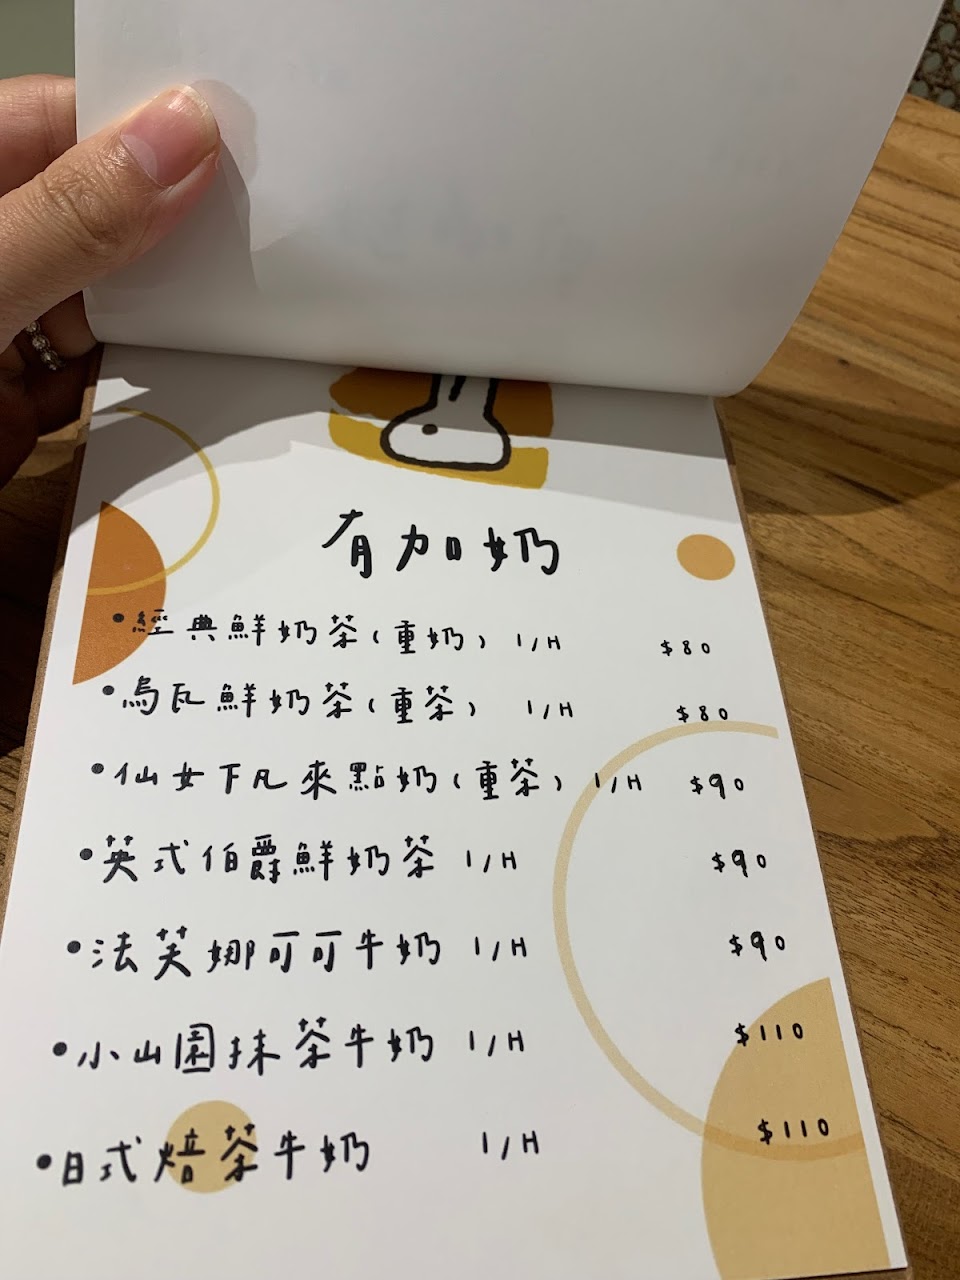 有加奶
•經典鮮奶茶(重奶) I/H $80
•烏瓦鮮奶茶(重茶) I/H $80
•仙女下凡來點奶(重茶) I/H $90
•英式伯爵鮮奶茶 I/H $90
•法芙娜可可牛奶 I/H $90
•小山園抹茶牛奶 I/H $110
•日式焙茶牛奶 I/H $110